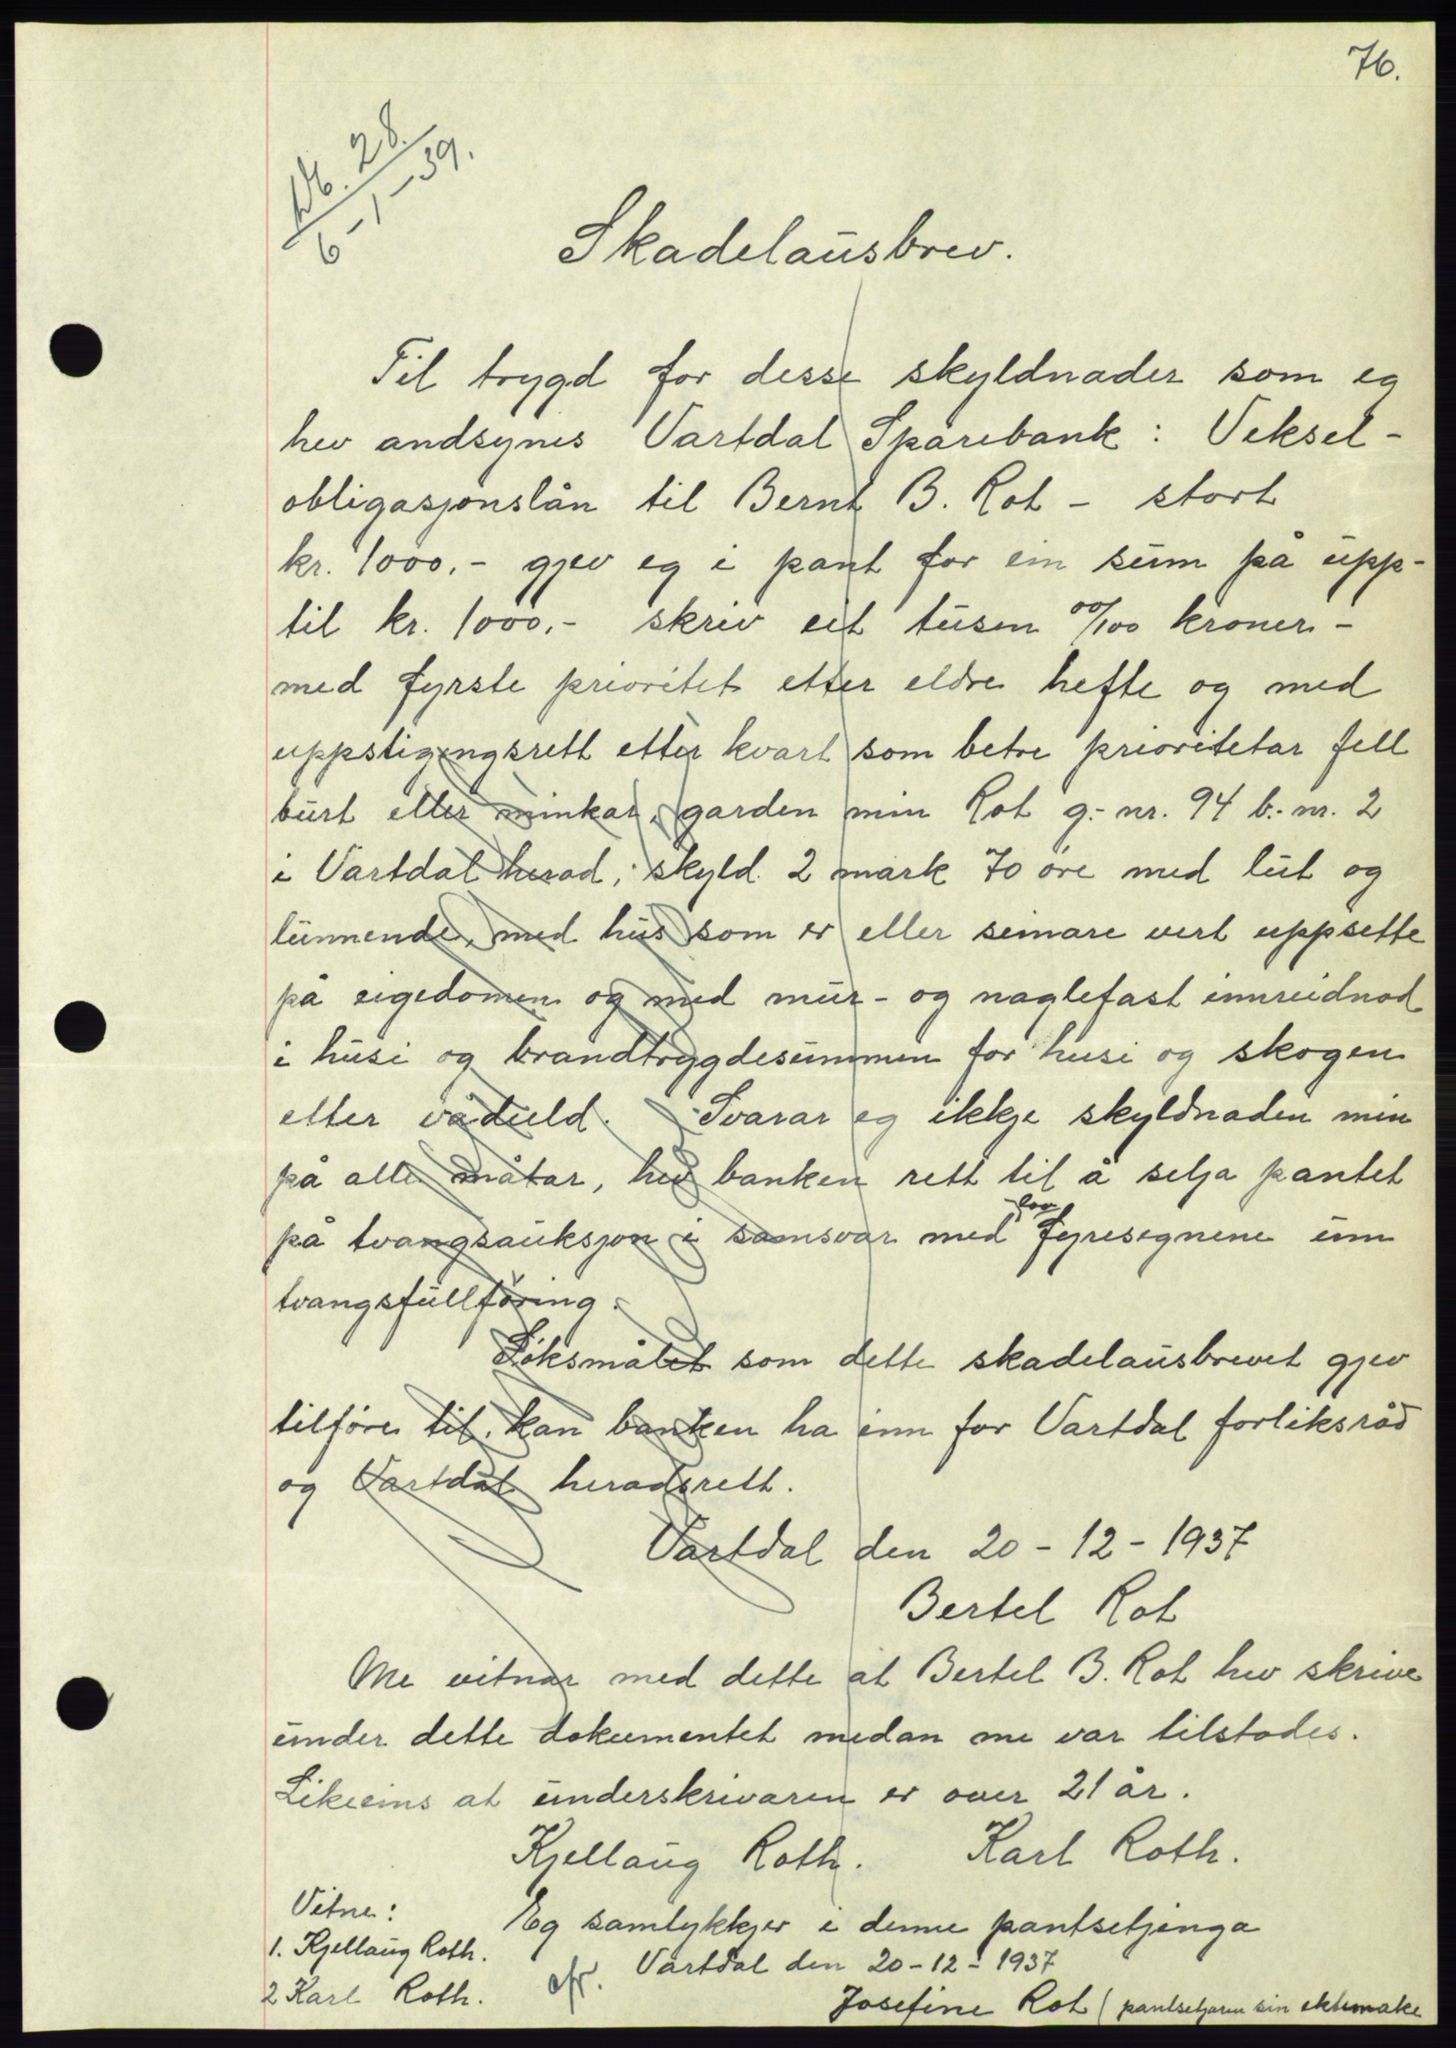 76.
Nb. 28.
6-1-39.
Skadelausbrev.
Til trygd for desse skyldnader som eg
hev andsynes Vartdal Sparebank: Veksel-
obligasjonslån til Bernt B. Rot - stort
kr. 1000.- gjev eg i pant for ein sum på upp-
til kr. 1000.- skriv eit tusen 00/100 kroner -
med fyrste prioritet etter eldre hefte og med
uppstigingsrett etter kvart som betre prioritetar fell
burt eller minkar, garden min Rot g.-nr. 94 b.-nr. 2
i Vartdal herad, skyld 2 mark 70 öre med lut og
lunnende, med hus som er eller seinare vert uppsette
på eigedomen og med mur- og naglefast innreidnad
i husi og brandtrygdesummen for husi og skogen
etter vådeeld. Svarar eg ikkje skyldnaden min
på alle måtar, hev banken rett til å selja pantet
på tvangsauksjon i samsvar med lov
fyresegnene um
tvangsfullföring.
Söksmålet som dette skadelausbrevet gjev
tilföre til, kan banken ha inn for Vartdal forliksråd
og Vartdal heradsrett.
Vartdal den 20-12-1937
Bertel Rot
Me vitnar med dette at Bertel B. Rot hev skrive
under dette dokumentet medan me var tilstades.
Likeeins at underskrivaren er over 21 år.
Kjellaug Roth. Karl Roth.
Vitne: Eg samtykkjer i denne pantsetjinga
1. Kjellaug Roth. Vartdal den 20-12-1937
2 Karl Roth. afr.
Josefine Rot (pantsetjaren sin ektemake